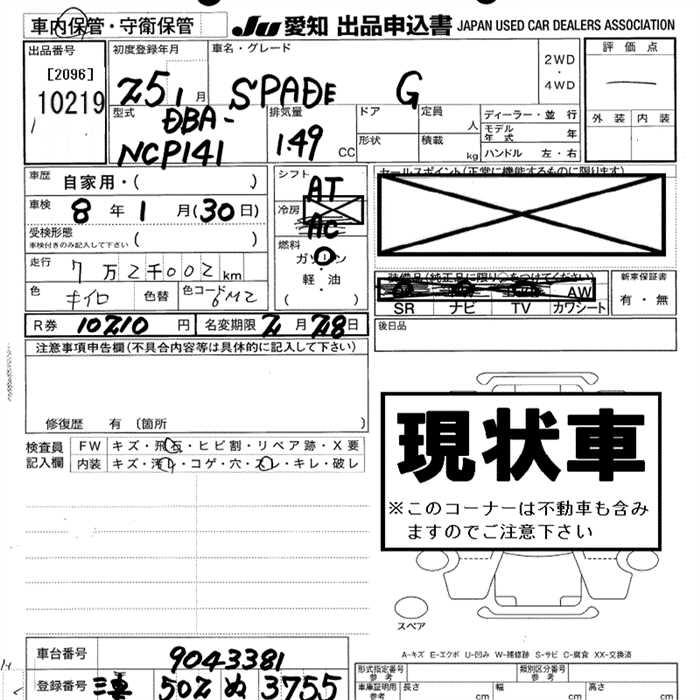 車内保管・守衛保管
JU 愛知 出品申込書 JAPAN USED CAR DEALERS ASSOCIATION
出品番号
[2096]
10219
初度登録年月
25 1 月
車名・グレード
SPADE G
2WD
・
4WD
評価点
外装 内装
型式
DBA-
NCP141
排気量
1.49 CC
ドア
形状
定員
人
積載
kg
ディーラー・並行
モデル年式 年
ハンドル 左・右
車歴 自家用・( )
車検 8 年 1 月(30 日)
受検形態
車検付きのみ記入して下さい ( )
走行 7 万 2 千 002 km
色 キイロ 色替 色コード 6M2
シフト
AT
冷房
AC
燃料
ガソリン
軽・油
( )
セールスポイント(正常に機能するものに限ります)
装備品(純正品に限り○をつけてください)
AW
SR ナビ TV カワシート
新車保証書
有・無
R券 10210 円 名変期限 2 月 28 日
後日品
注意事項申告欄(不具合内容等は具体的に記入して下さい)
修復歴 有 〔箇所 〕
検査員記入欄
FW キズ・飛石・ヒビ割・リペア跡・X要
内装 キズ・汚レ・コゲ・穴・スレ・キレ・破レ
現状車
※このコーナーは不動車も含み
ますのでご注意下さい
スペア
A-キズ E-エクボ U-凹み W-補修跡 S-サビ C-腐食 XX-交換済
車台番号 9043381
登録番号 三重 502 ぬ 3755
形式指定番号
参考
類別区分番号
参考
車庫証明用
参考
長さ cm 幅 cm 高さ cm